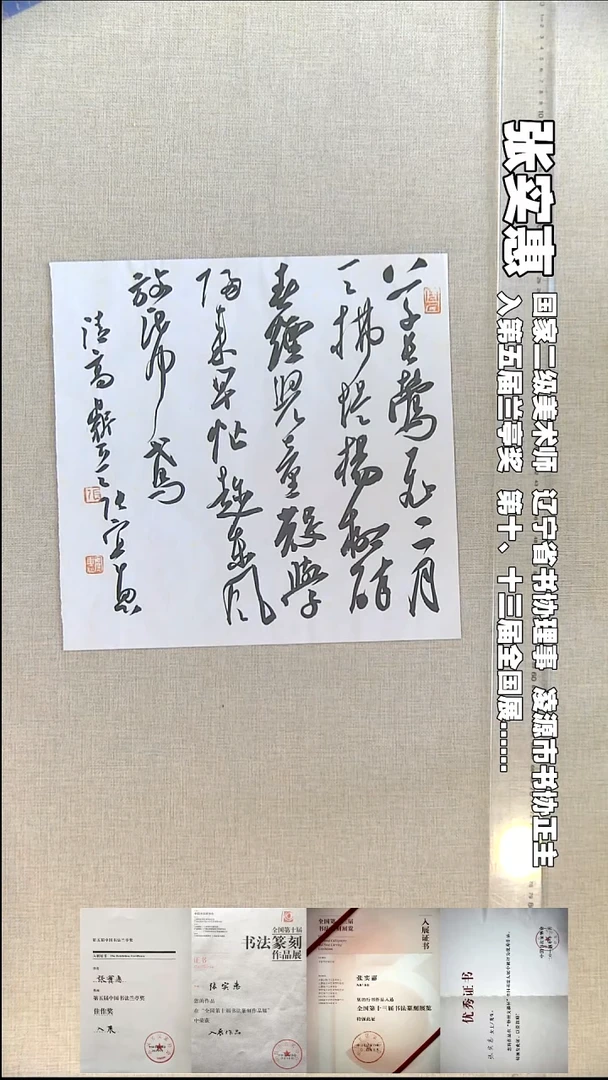 张实惠
国家二级美术师 辽宁省书协理事 凌源市书协正主
入第五届兰亭奖 第十、十三届全国展……
草長鶯飛二月
天拂堤楊柳醉
春煙兒童散學
歸來早忙趁東風
放紙鳶
清高鼎 張實惠
第五届中国书法兰亭奖
张实惠
第五届中国书法兰亭奖
佳作奖
入展
全国第十届
书法篆刻
作品展
证书
张实惠
您的作品
在“全国第十届书法篆刻作品展”
中荣获
入展作品
入展证书
张实惠
全国第十三届书法篆刻展览
特颁此证
优秀证书
张实惠